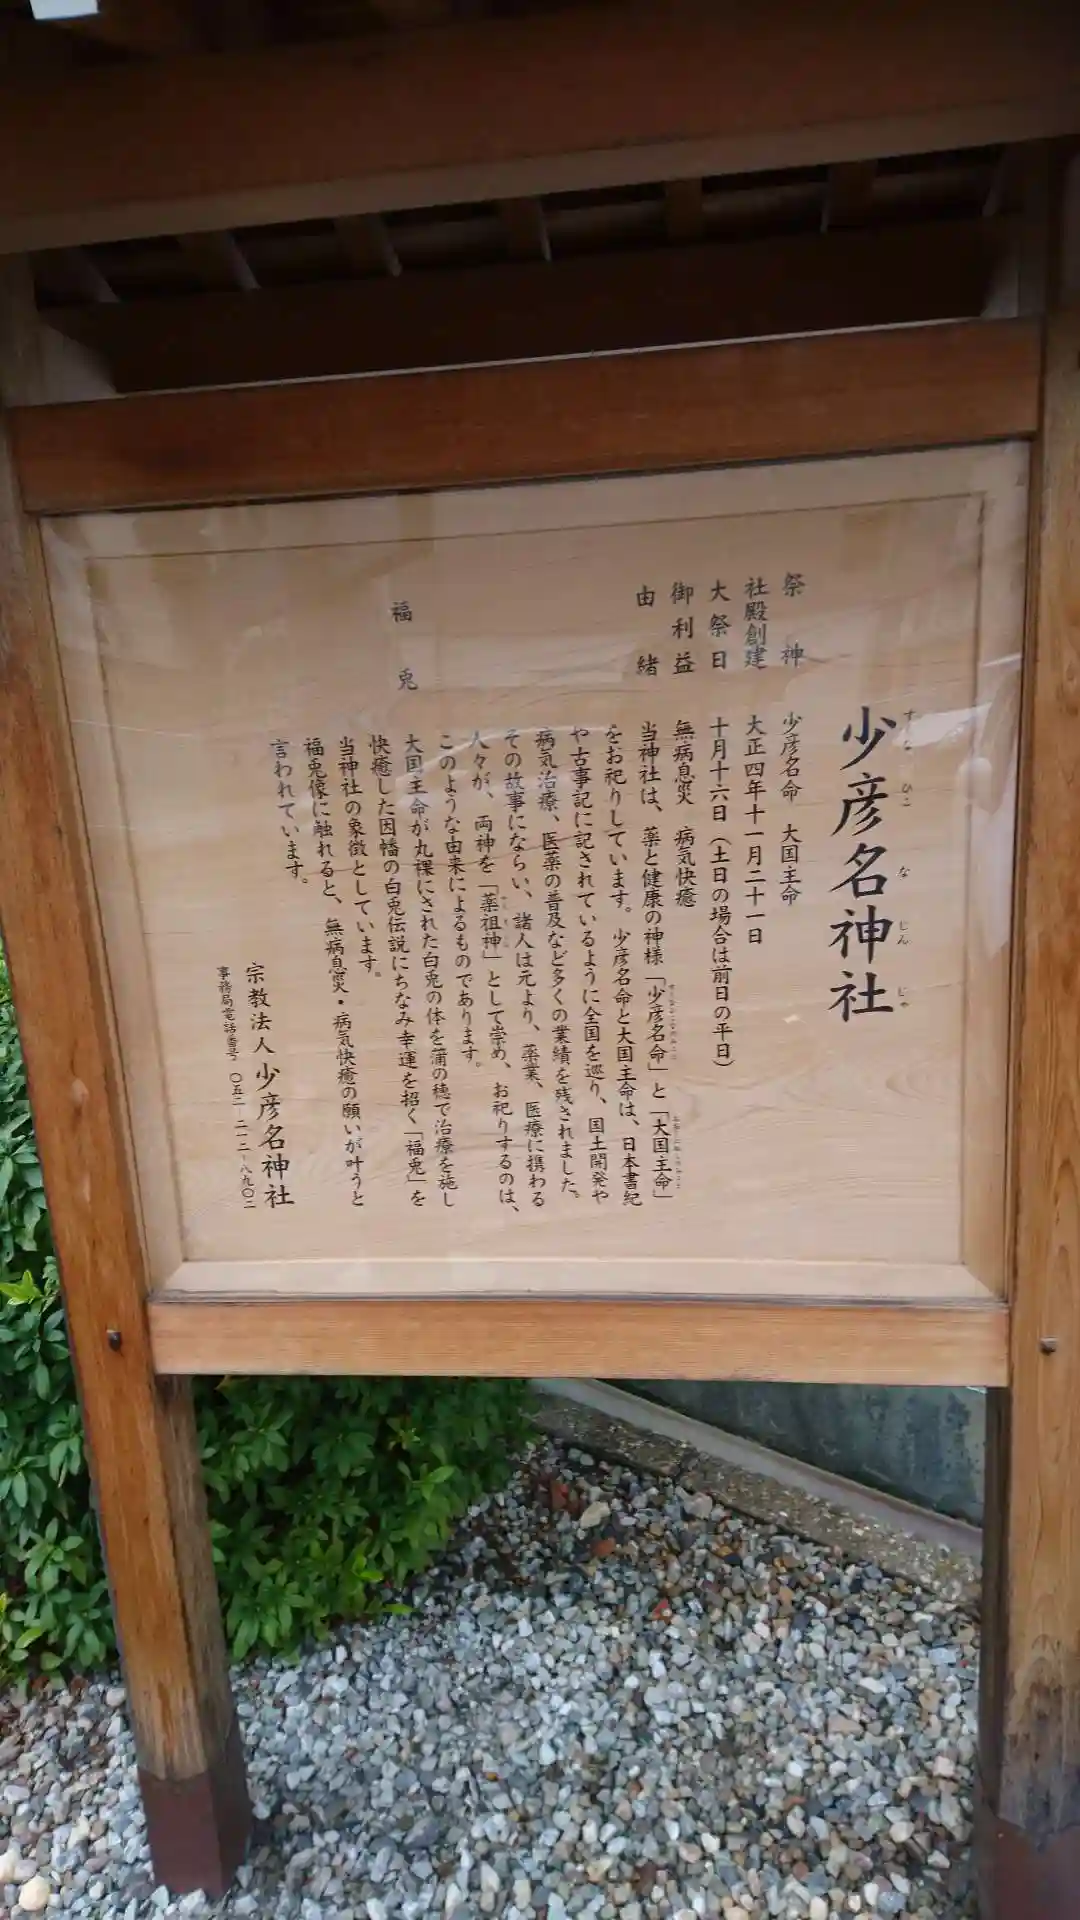 少彦名神社
すくなひこなじんじゃ
祭神　少彦名命　大国主命
社殿創建　大正四年十一月二十一日
大祭日　十月十六日（土日の場合は前日の平日）
御利益　無病息災　病気快癒
由緒　当神社は、薬と健康の神様「少彦名命」と「大国主命」
をお祀りしています。少彦名命と大国主命は、日本書紀
や古事記に記されているように全国を巡り、国土開発や
病気治療、医薬の普及など多くの業績を残されました。
その故事にならい、諸人は元より、薬業、医療に携わる
人々が、両神を「薬祖神」として崇め、お祀りするのは、
このような由来によるものであります。
福兎　大国主命が丸裸にされた白兎の体を蒲の穂で治療を施し
快癒した因幡の白兎伝説にちなみ幸運を招く「福兎」を
当神社の象徴としています。
福兎像に触れると、無病息災・病気快癒の願いが叶うと
言われています。
宗教法人少彦名神社
事務局電話番号　〇五二-二一二-八九〇二